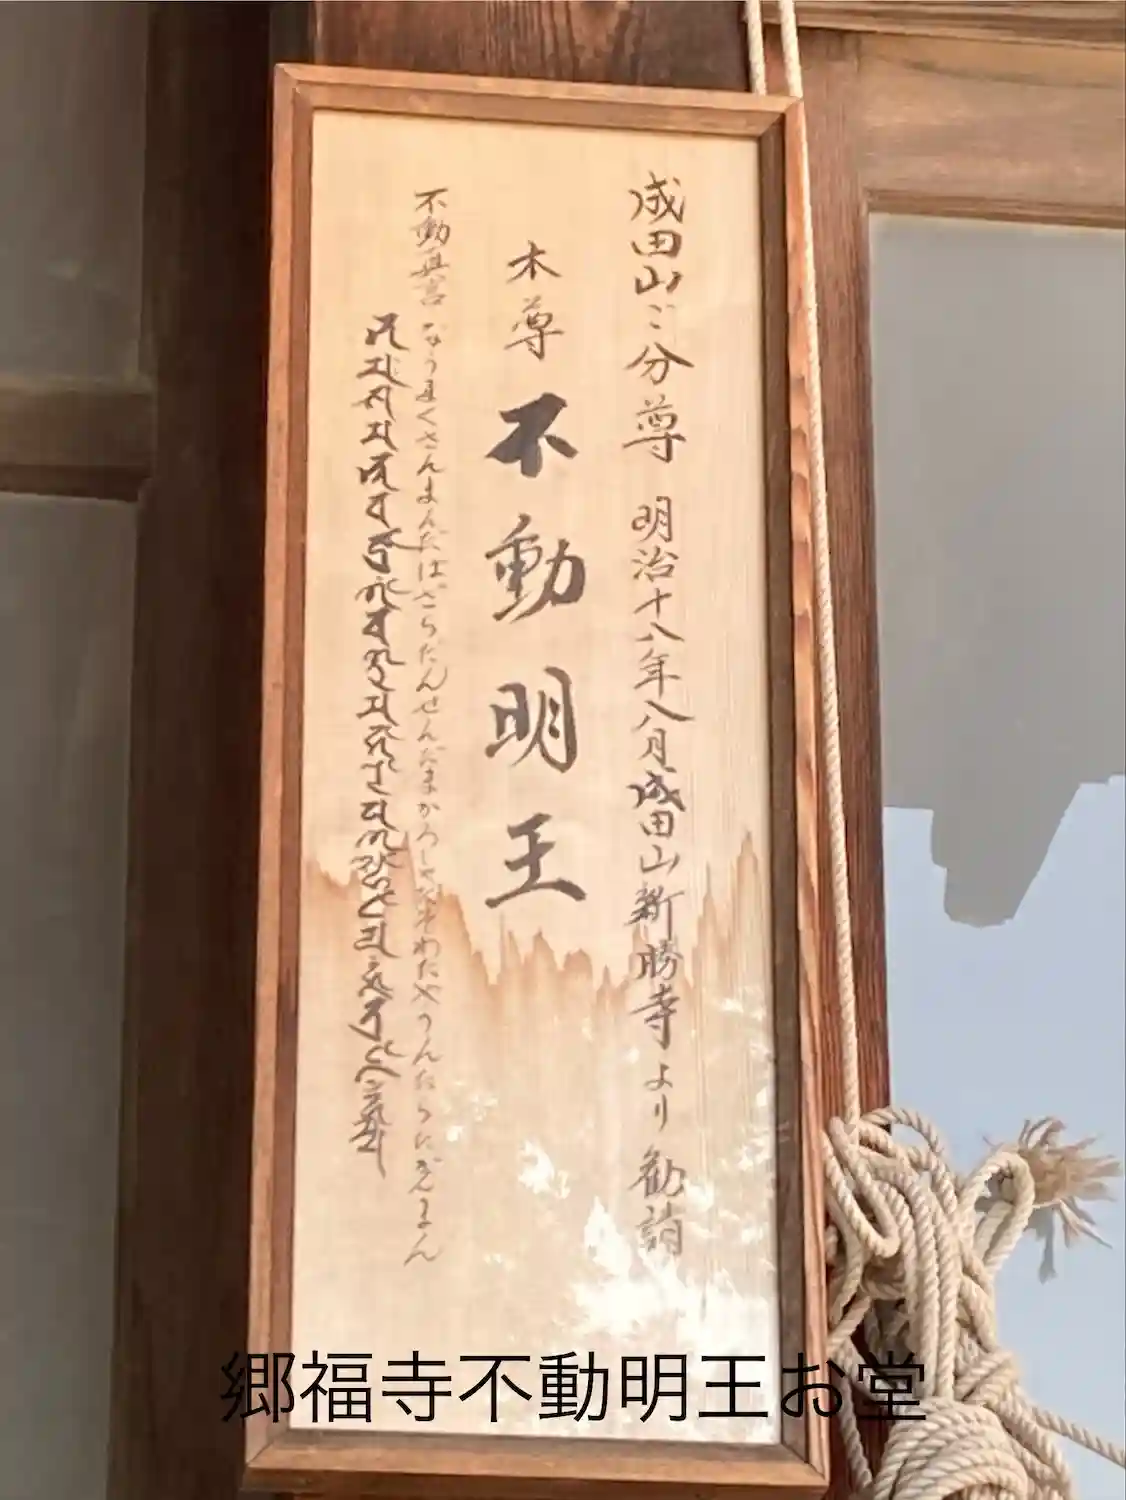 成田山ご分尊 明治十八年八月成田山新勝寺より勧請
本尊 不動明王
不動真言 なうまくさんまんだばざらだんせんだまかろしやだそわたやうんたらたかんまん
郷福寺不動明王お堂